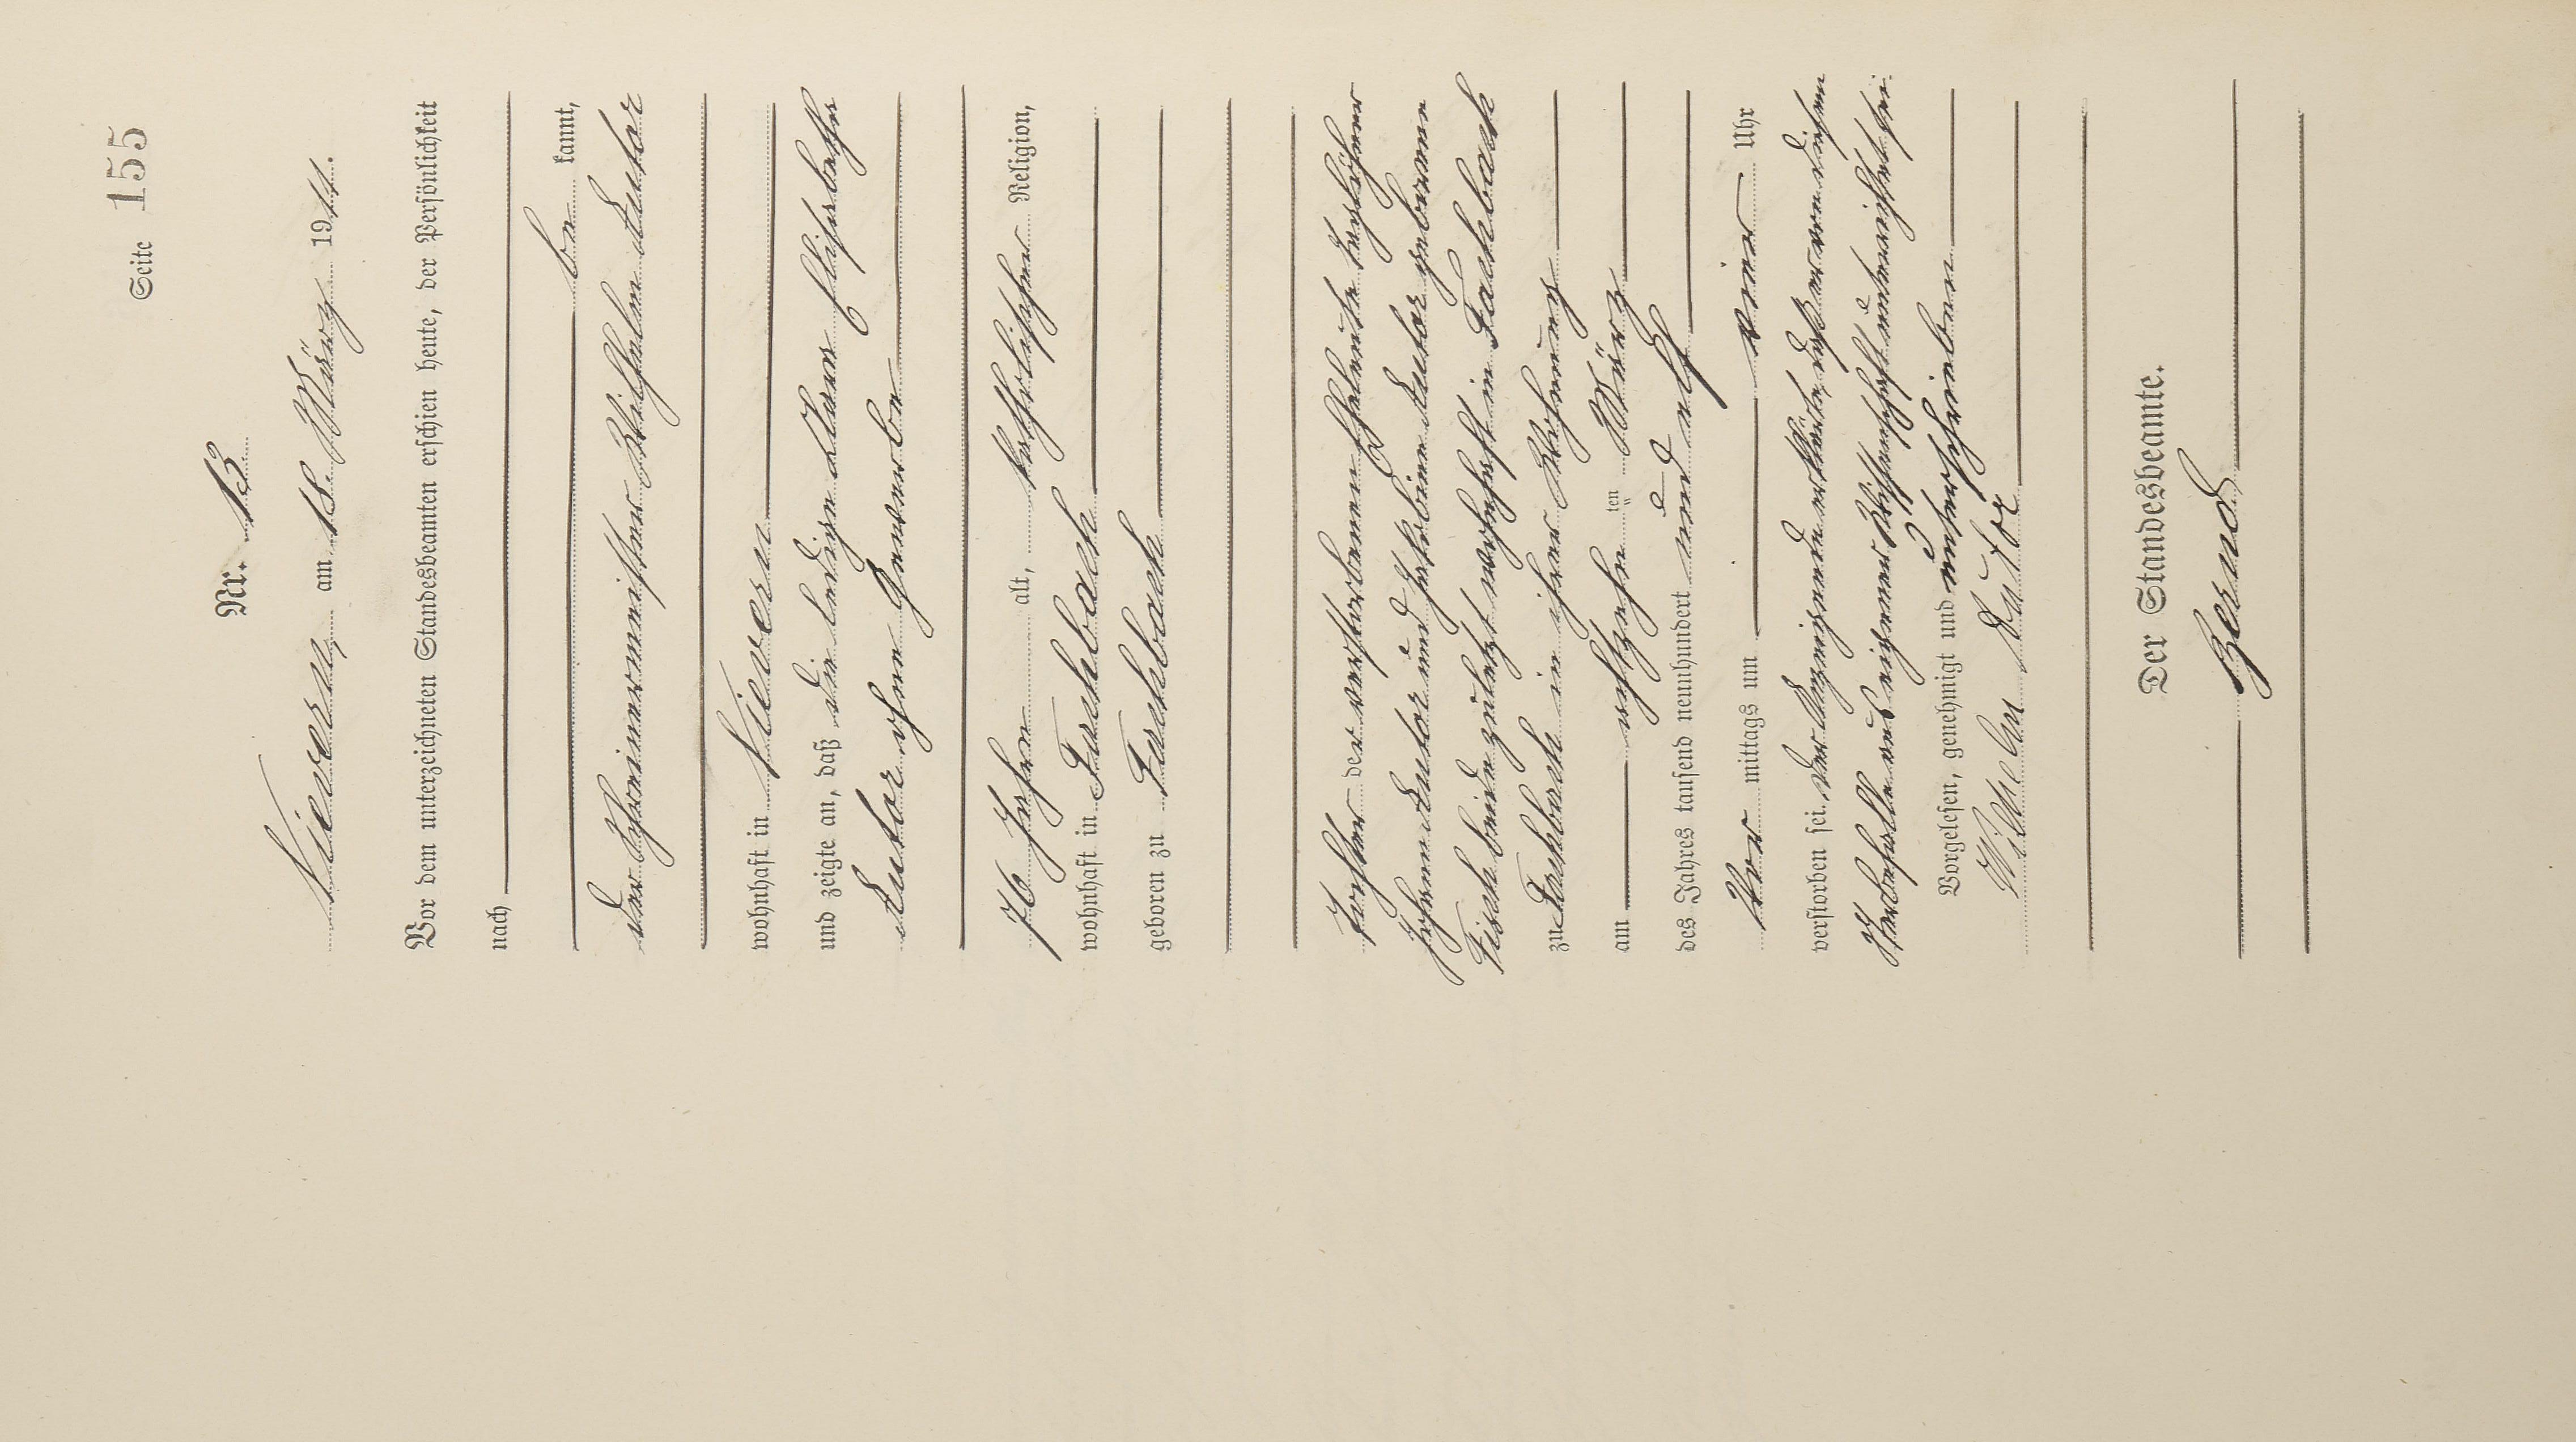 Seite 155
Nr. 13
Nievern, am 18. März 1911.
Vor dem unterzeichneten Standesbeamten erschien heute, der Persönlichkeit
nach
be kannt,
der Schreinermeister Wilhelm Sutor
wohnhaft in Nievern
und zeigte an, daß die ledige Anna Elisabetha
Sutor ohne Gewerbe
76 Jahre alt, katholischer Religion,
wohnhaft in Fachbach
geboren zu Fachbach
Tochter der verstorbenen Eheleute Tagelöhner
Johann Sutor und Jakobine Sutor geborene
Fisch beide zuletzt wohnhaft in Fachbach
zu Fachbach in ihrer Wohnung
am achtzehn ten März
des Jahres tausend neunhundert und elf
Vor mittags um vier Uhr
verstorben sei. Der Anzeigende erklärte, daß er von diesem
Sterbefalle aus eigener Wissenschaft unterrichtet sei.
Vorgelesen, genehmigt und unterschrieben
Wilhelm Sutor
Der Standesbeamte.
Bernd